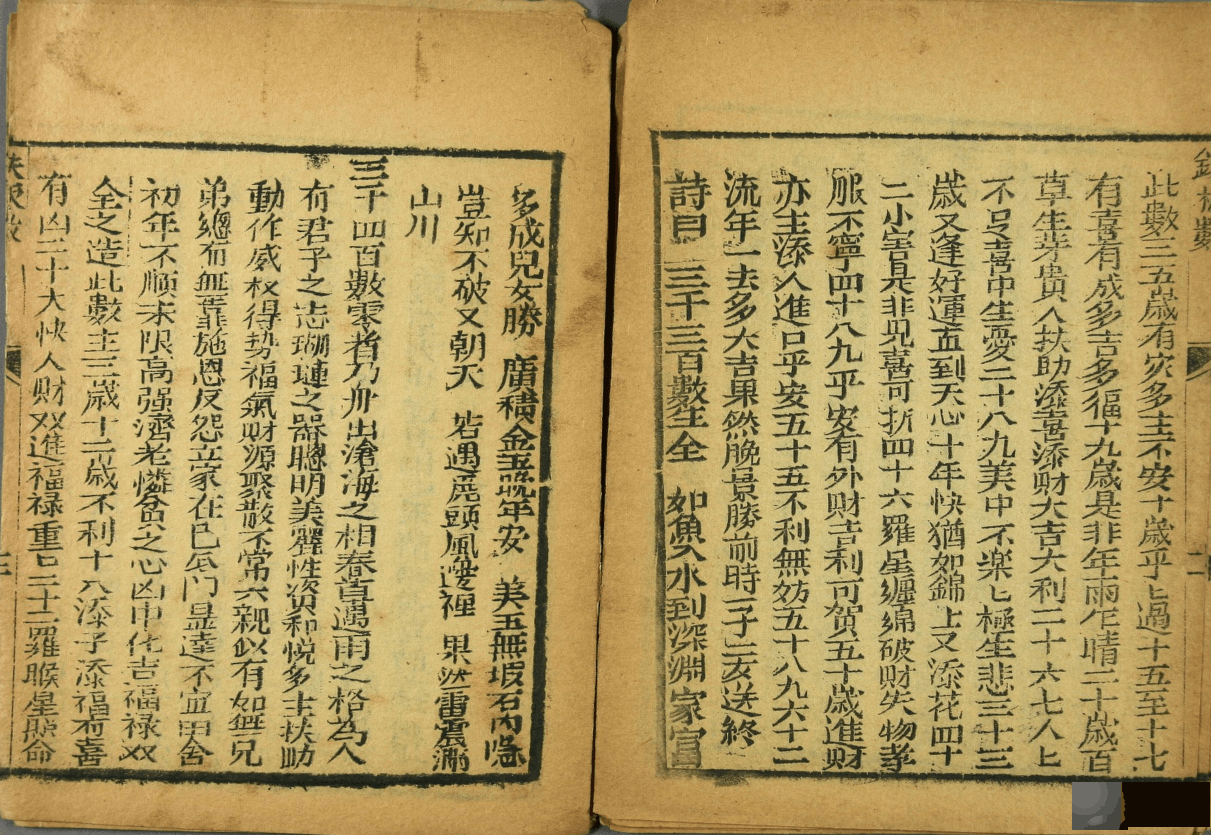 此數三五歲有灾多主不安十歲乎乚過十五至十七
有喜有成多吉多福十九歲是非年雨乍晴二十歲百
草生芽貴人扶助添喜添财大吉大利二十六七人乚
不足喜中生憂二十八九美中不楽乚極生悲三十三
歲又逢好運直到天心十年快猶如錦上又添花四十
二小害是非見喜可折四十六羅星纏綿破财失物孝
服不寧四十八九乎安有外财吉利可贺五十歲進财
亦主添人進口乎安五十五不利無妨五十八九六十二
流年一去多大吉果然晚景勝前時一子二友送終
詩曰 三千三百數生全 如魚入水到深淵家富
多成兒女勝 廣積金玉晚年安 美玉無瑕石内隐
豈知不破又朝天 若遇虎頭風邊裡 果然雷震滿
山川
三千四百數零者乃舟出滄海之相春苗遇雨之格為人
有君子之志瑚璉之器聰明美麗性資和悦多主扶助
動作威权得势福氣财源聚散不常六親似有如無兄
弟總有無靠施恩反怨立家在已瓜门显達不宜田舍
初年不順末限高强濟老憐貧之心凶中化吉福禄双
全之造此數主三歲十二歲不利十八添子添福有喜
有凶二十大快人财双進福禄重乚二十二羅睺星照命